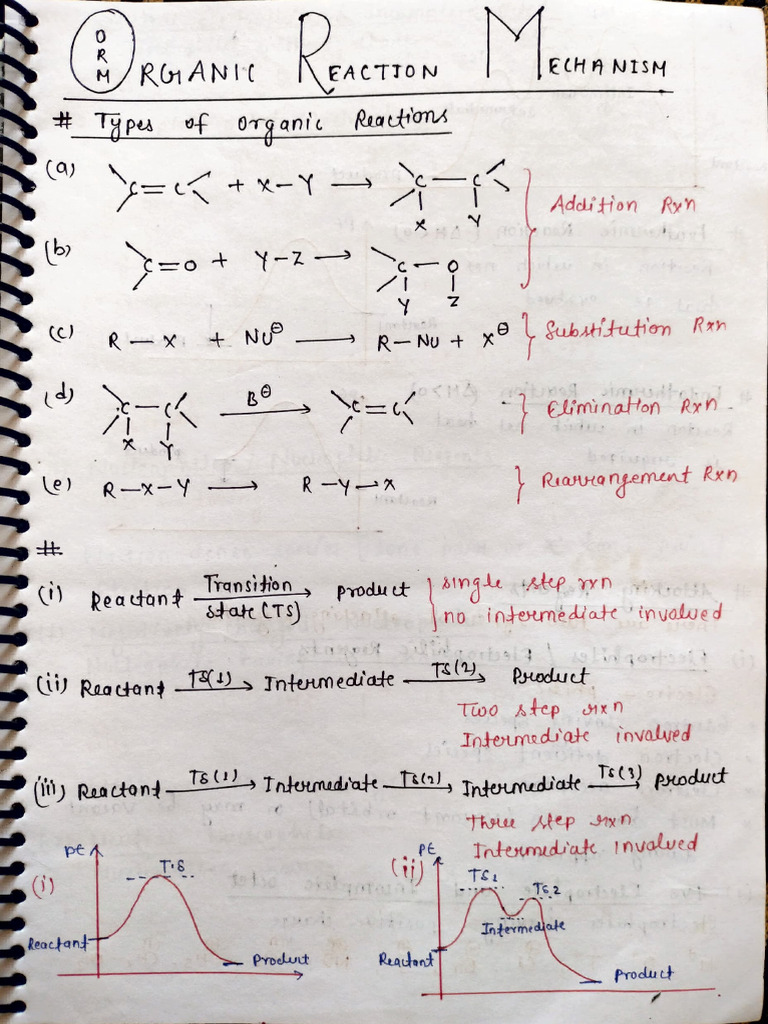 ORM ORGANIC REACTION MECHANISM
# Types of Organic Reactions
(a) C=C + X-Y → C-C
X Y
Addition Rxn
(b) C=O + Y-Z → C-O
Y Z
(c) R-X + Nu⊖ → R-Nu + X⊖ } Substitution Rxn
(d) C-C B⊖ → C=C } Elimination Rxn
X Y
(e) R-X-Y → R-Y-X } Rearrangement Rxn
#
(i) Reactant Transition state (TS) → Product } single step rxn
no intermediate involved
(ii) Reactant TS(1) → Intermediate TS(2) → Product
Two step rxn
Intermediate involved
(iii) Reactant TS(1) → Intermediate TS(2) → Intermediate TS(3) → Product
Three step rxn
Intermediate involved
(i) PE
T.S
Reactant
Product
(ii) PE
TS1
TS2
Intermediate
Reactant
Product